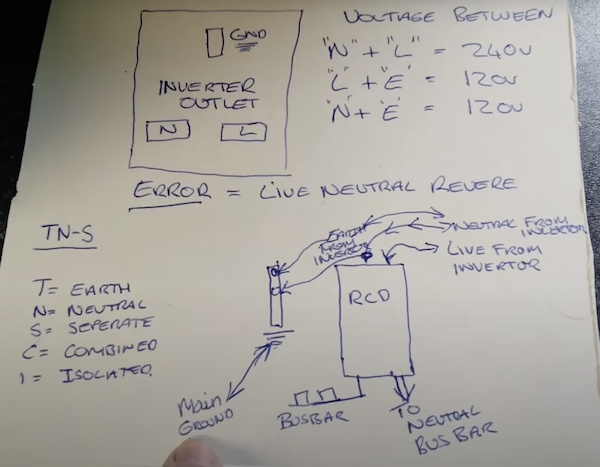 GND
INVERTER
OUTLET
N
L
VOLTAGE BETWEEN
"N" + "L" = 240v
"L" + "E" = 120v
"N" + "E" = 120v
ERROR = LIVE NEUTRAL REVERE
TN-S
T = EARTH
N = NEUTRAL
S = SEPERATE
C = COMBINED
I = ISOLATED.
EARTH
FROM
INVERTOR
NEUTRAL FROM
INVERTOR
LIVE FROM
INVERTOR
RCD
Main
GROUND
BUSBAR
TO
NEUTRAL
BUS BAR